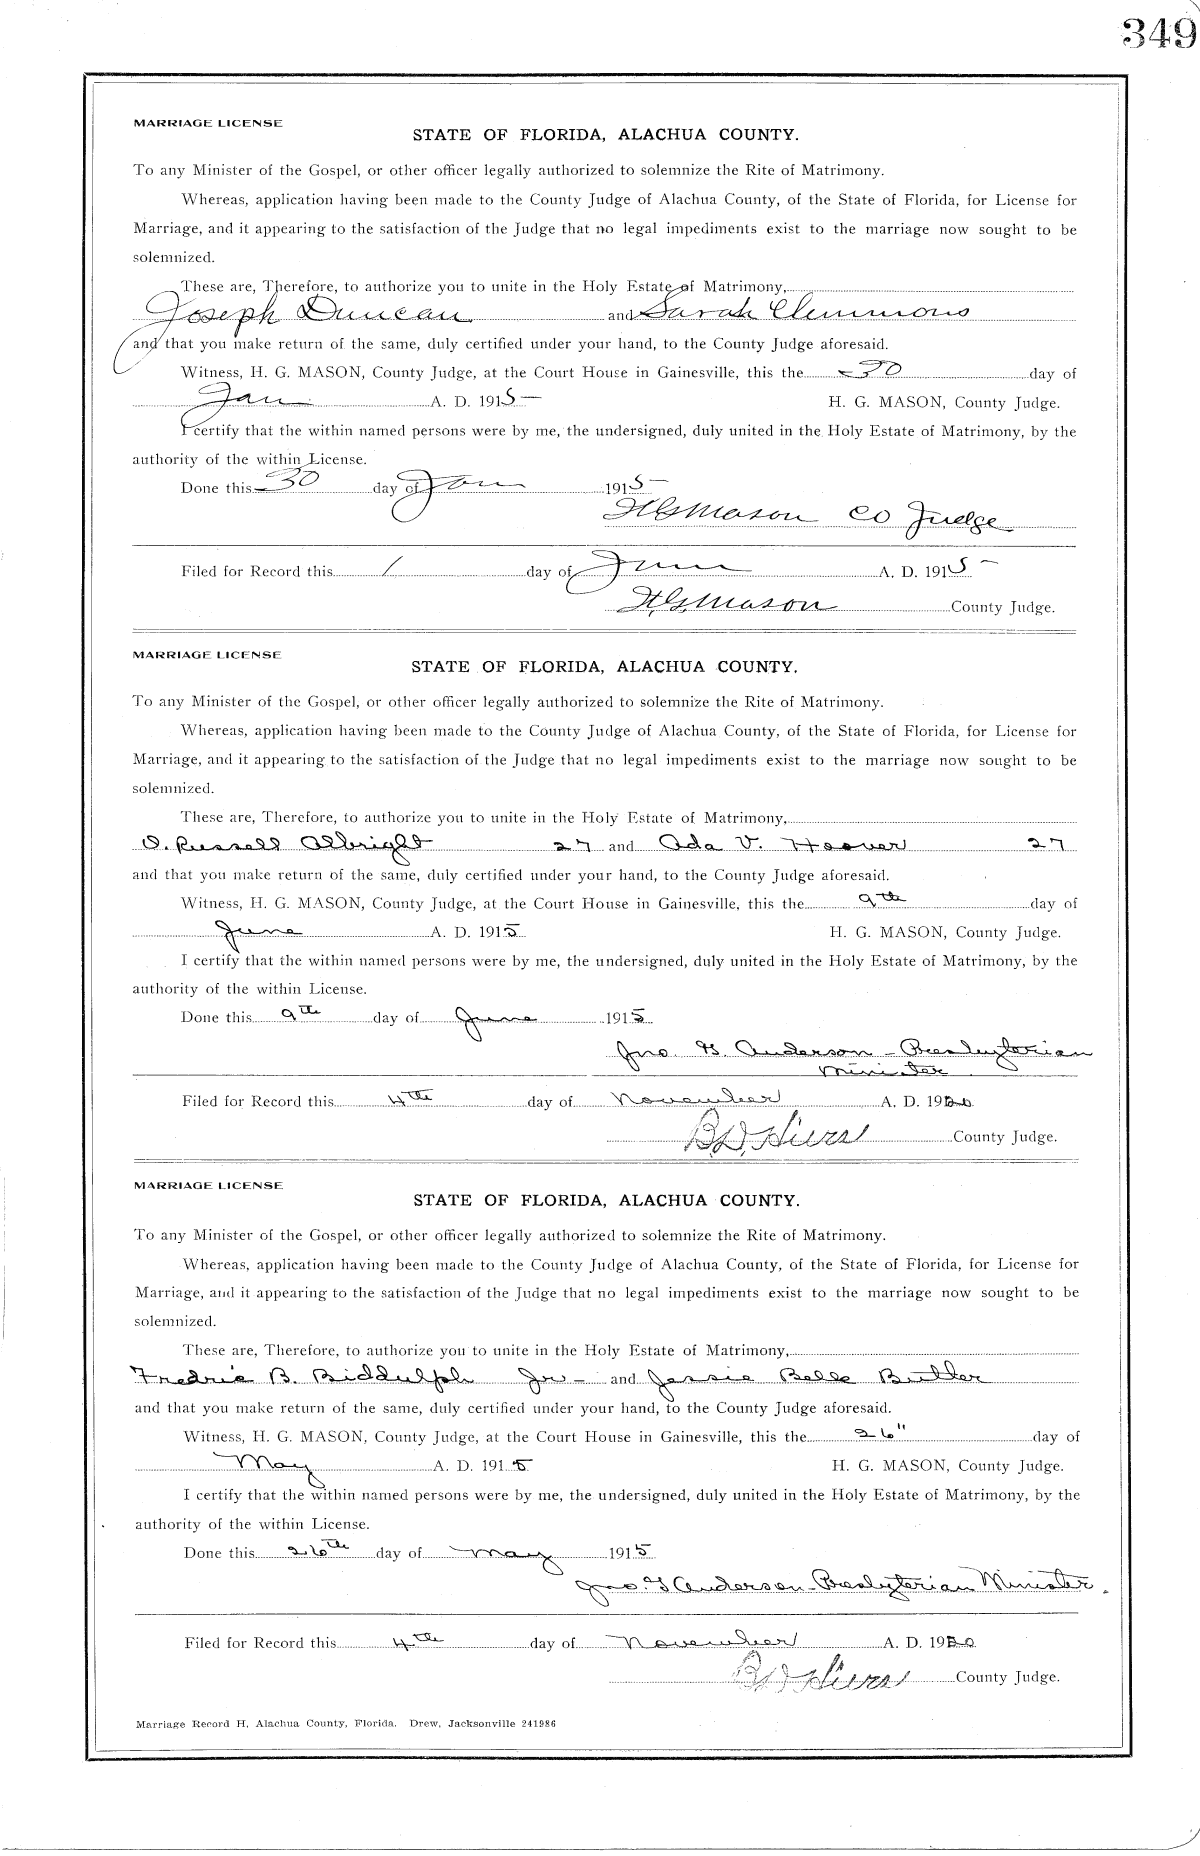 349
MARRIAGE LICENSE
STATE OF FLORIDA, ALACHUA COUNTY.
To any Minister of the Gospel, or other officer legally authorized to solemnize the Rite of Matrimony.
Whereas, application having been made to the County Judge of Alachua County, of the State of Florida, for License for
Marriage, and it appearing to the satisfaction of the Judge that no legal impediments exist to the marriage now sought to be
solemnized.
These are, Therefore, to authorize you to unite in the Holy Estate of Matrimony,
Joseph Duncan and Sarah Clemmons
and that you make return of the same, duly certified under your hand, to the County Judge aforesaid.
Witness, H. G. MASON, County Judge, at the Court House in Gainesville, this the 30 day of
Jan A. D. 1915 H. G. MASON, County Judge.
I certify that the within named persons were by me, the undersigned, duly united in the Holy Estate of Matrimony, by the
authority of the within License.
Done this 30 day of Jan 1915
H G Mason Co Judge
Filed for Record this 1 day of June A. D. 1915
H. G. Mason County Judge.
MARRIAGE LICENSE
STATE OF FLORIDA, ALACHUA COUNTY.
To any Minister of the Gospel, or other officer legally authorized to solemnize the Rite of Matrimony.
Whereas, application having been made to the County Judge of Alachua County, of the State of Florida, for License for
Marriage, and it appearing to the satisfaction of the Judge that no legal impediments exist to the marriage now sought to be
solemnized.
These are, Therefore, to authorize you to unite in the Holy Estate of Matrimony,
O. Russell Albright 27 and Ada V. Hoover 27
and that you make return of the same, duly certified under your hand, to the County Judge aforesaid.
Witness, H. G. MASON, County Judge, at the Court House in Gainesville, this the 9th day of
June A. D. 1915 H. G. MASON, County Judge.
I certify that the within named persons were by me, the undersigned, duly united in the Holy Estate of Matrimony, by the
authority of the within License.
Done this 9th day of June 1915
Jno. G. Anderson - Presbyterian
Minister
Filed for Record this 4th day of November A. D. 1920
B. D. Hiers County Judge.
MARRIAGE LICENSE
STATE OF FLORIDA, ALACHUA COUNTY.
To any Minister of the Gospel, or other officer legally authorized to solemnize the Rite of Matrimony.
Whereas, application having been made to the County Judge of Alachua County, of the State of Florida, for License for
Marriage, and it appearing to the satisfaction of the Judge that no legal impediments exist to the marriage now sought to be
solemnized.
These are, Therefore, to authorize you to unite in the Holy Estate of Matrimony,
Fredric B. Biddulph Jr - and Jessie Belle Butler
and that you make return of the same, duly certified under your hand, to the County Judge aforesaid.
Witness, H. G. MASON, County Judge, at the Court House in Gainesville, this the 26" day of
May A. D. 1915 H. G. MASON, County Judge.
I certify that the within named persons were by me, the undersigned, duly united in the Holy Estate of Matrimony, by the
authority of the within License.
Done this 26th day of May 1915
Jno. G Anderson - Presbyterian Minister.
Filed for Record this 4th day of November A. D. 1920
B D Hiers County Judge.
Marriage Record H, Alachua County, Florida. Drew, Jacksonville 241986